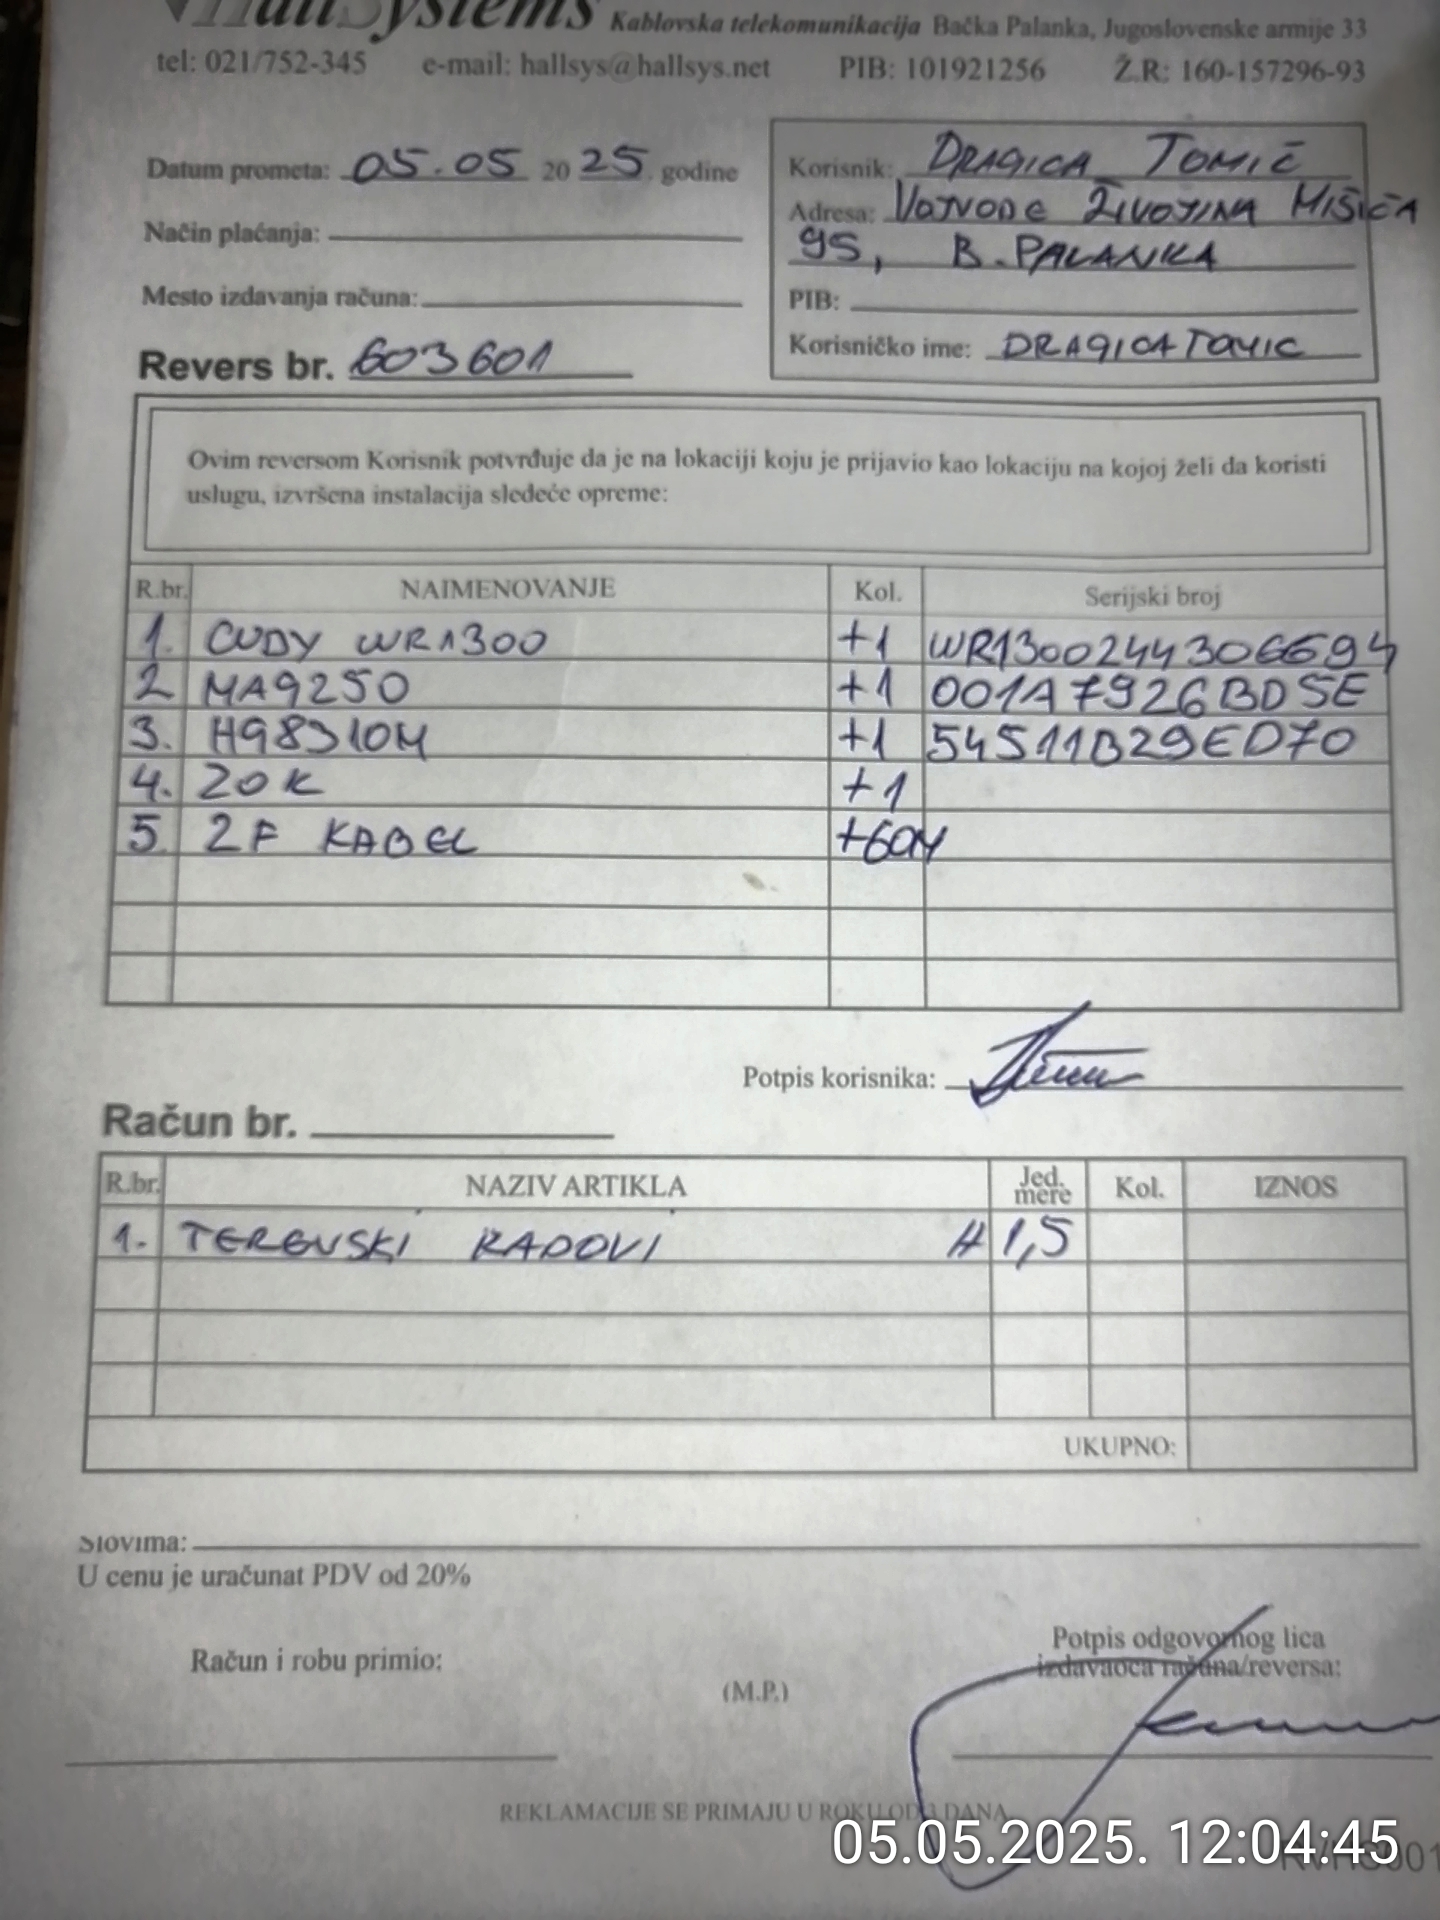 HallSystems Kablovska telekomunikacija Bačka Palanka, Jugoslovenske armije 33
tel: 021/752-345 e-mail: hallsys@hallsys.net PIB: 101921256 Ž.R: 160-157296-93
Datum prometa: 05.05 2025 godine
Način plaćanja:
Mesto izdavanja računa:
Revers br. 603601
Korisnik: DRAGICA TOMIČ
Adresa: VOJVODE ŽIVOJINA MIŠIĆA
95, B. PALANKA
PIB:
Korisničko ime: DRAGICATOMIC
Ovim reversom Korisnik potvrđuje da je na lokaciji koju je prijavio kao lokaciju na kojoj želi da koristi
uslugu, izvršena instalacija sledeće opreme:
R.br. NAIMENOVANJE Kol. Serijski broj
1. CUDY WR1300 +1 WR1300244306694
2 MA9250 +1 001A7926BD5E
3. HG8310M +1 54511B29ED70
4. ZOK +1
5. 2F KABEL +60M
Potpis korisnika:
Račun br.
R.br. NAZIV ARTIKLA Jed. mere Kol. IZNOS
1. TERENSKI RADOVI H 1,5
UKUPNO:
Slovima:
U cenu je uračunat PDV od 20%
Računi i robu primio:
(M.P.)
Potpis odgovornog lica
izdavaoca računa/reversa:
REKLAMACIJE SE PRIMAJU U ROKU OD 3 DANA
05.05.2025. 12:04:45